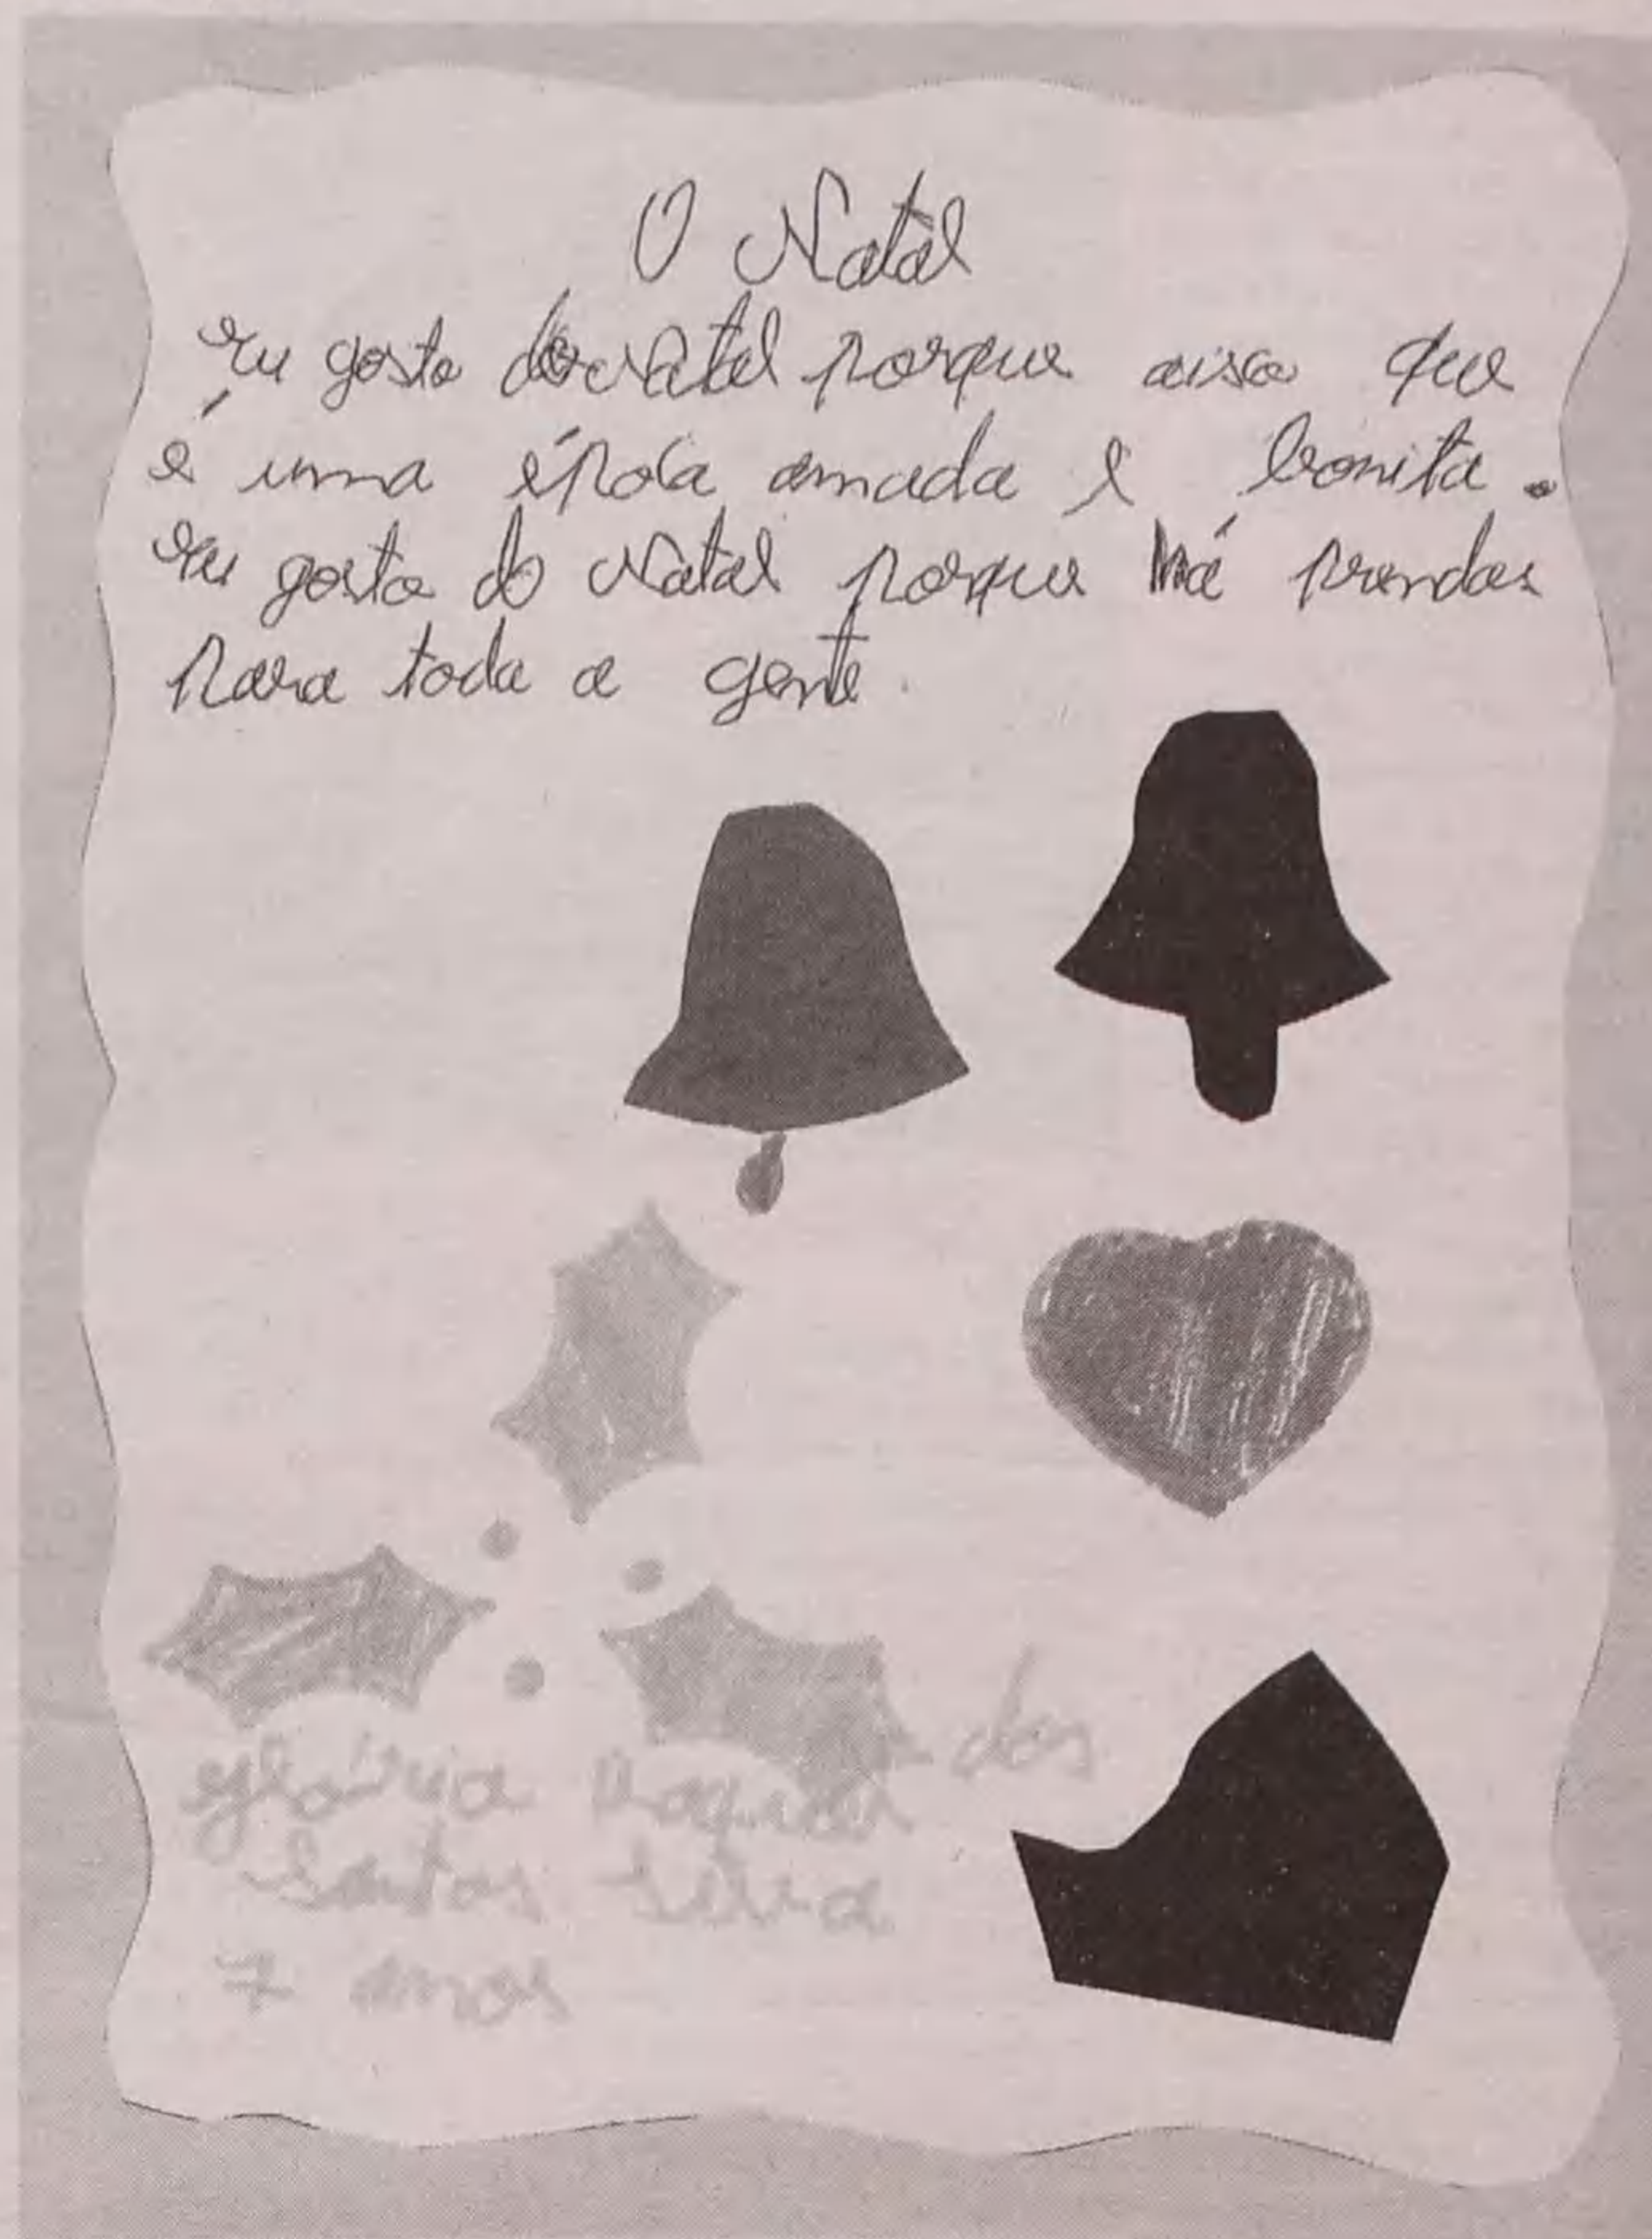 O Natal
Eu gosto do Natal porque que
é uma époća amada e bonita.
Eu gosto do Natal porque há prendas
para toda a gente.
Glória Raquel dos
Santos Silva
7 anos